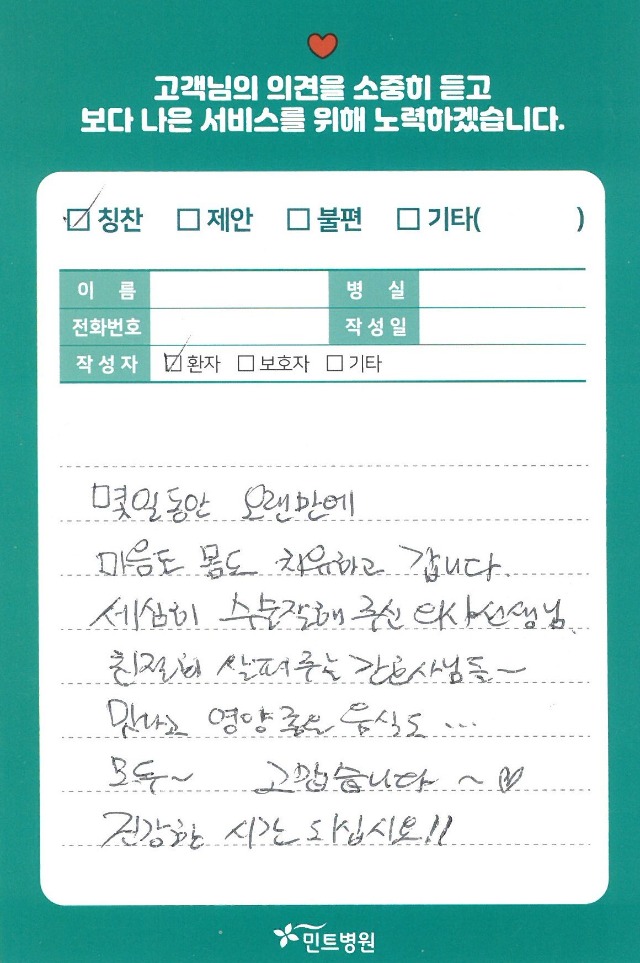 고객님의 의견을 소중히 듣고
보다 나은 서비스를 위해 노력하겠습니다.
칭찬 제안 불편 기타( )
이 름 병 실
전화번호 작성일
작성자 환자 보호자 기타
몇일동안 오랜만에
마음도 몸도 치유하고 갑니다.
세심히 수술잘해 주신 의사선생님.
친절히 살펴주는 간호사님들~
맛나고 영양 좋은 음식도 ...
모두~ 고맙습니다 ~♡
건강한 시간 되십시요!!
민트병원